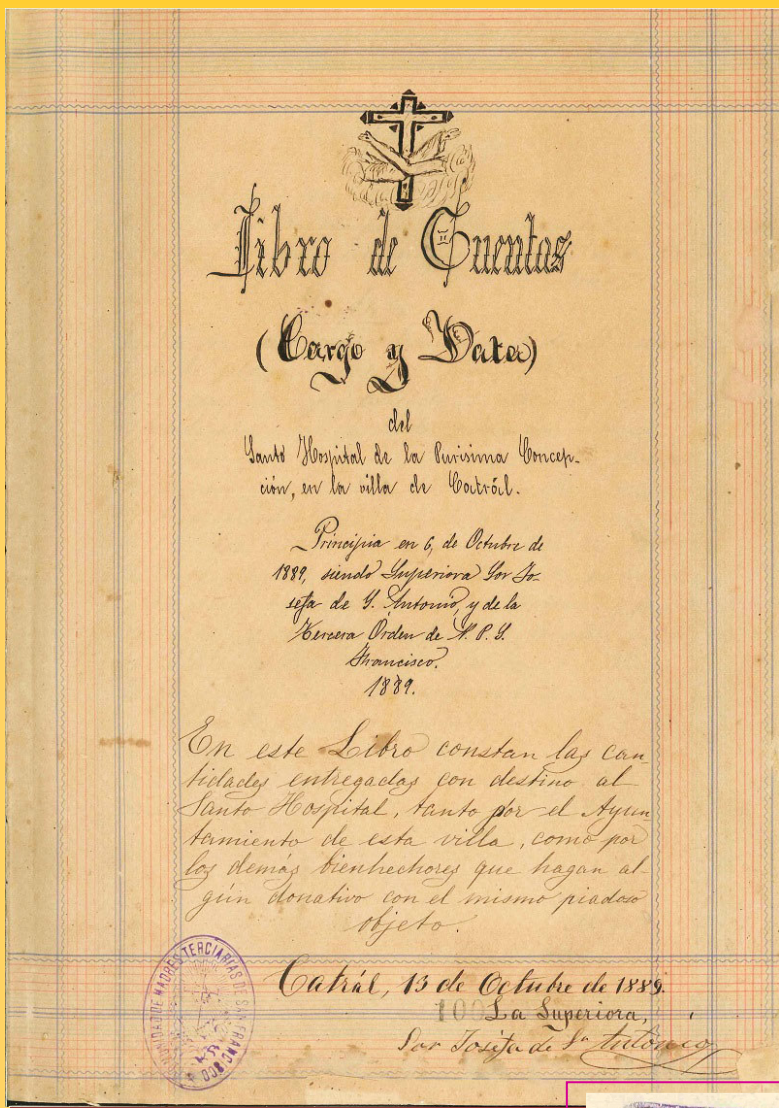 Libro de Cuentas
(Cargo y Data)
del
Santo Hospital de la Purisima Concep-
ción, en la villa de Catrál.
Principia en 6, de Octubre de
1889, siendo Superiora Sor Jo-
sefa de S. Antonio, y de la
Tercera Orden de N. P. S.
Francisco.
1889.
En este Libro constan las can-
tidades entregadas con destino al
Santo Hospital, tanto por el Ayun
tamiento de esta villa, como por
los demás bienhechores que hagan al-
gún donativo con el mismo piadoso
objeto.
Catrál, 13 de Octubre de 1889.
La Superiora,
Sor Josefa de Sn Antonio
MADRES TERCIARIAS DE SAN FRANCISCO